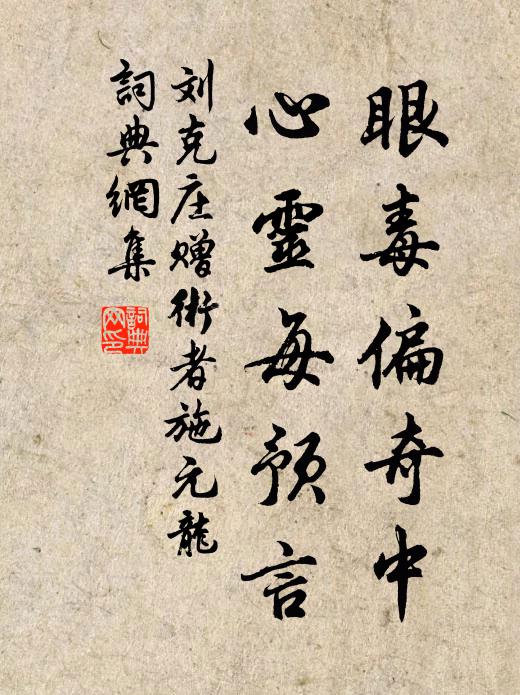 眼毒偏奇中
心靈每預言
刘克庄赠術者施元龍
詞典網集
詞典
网印